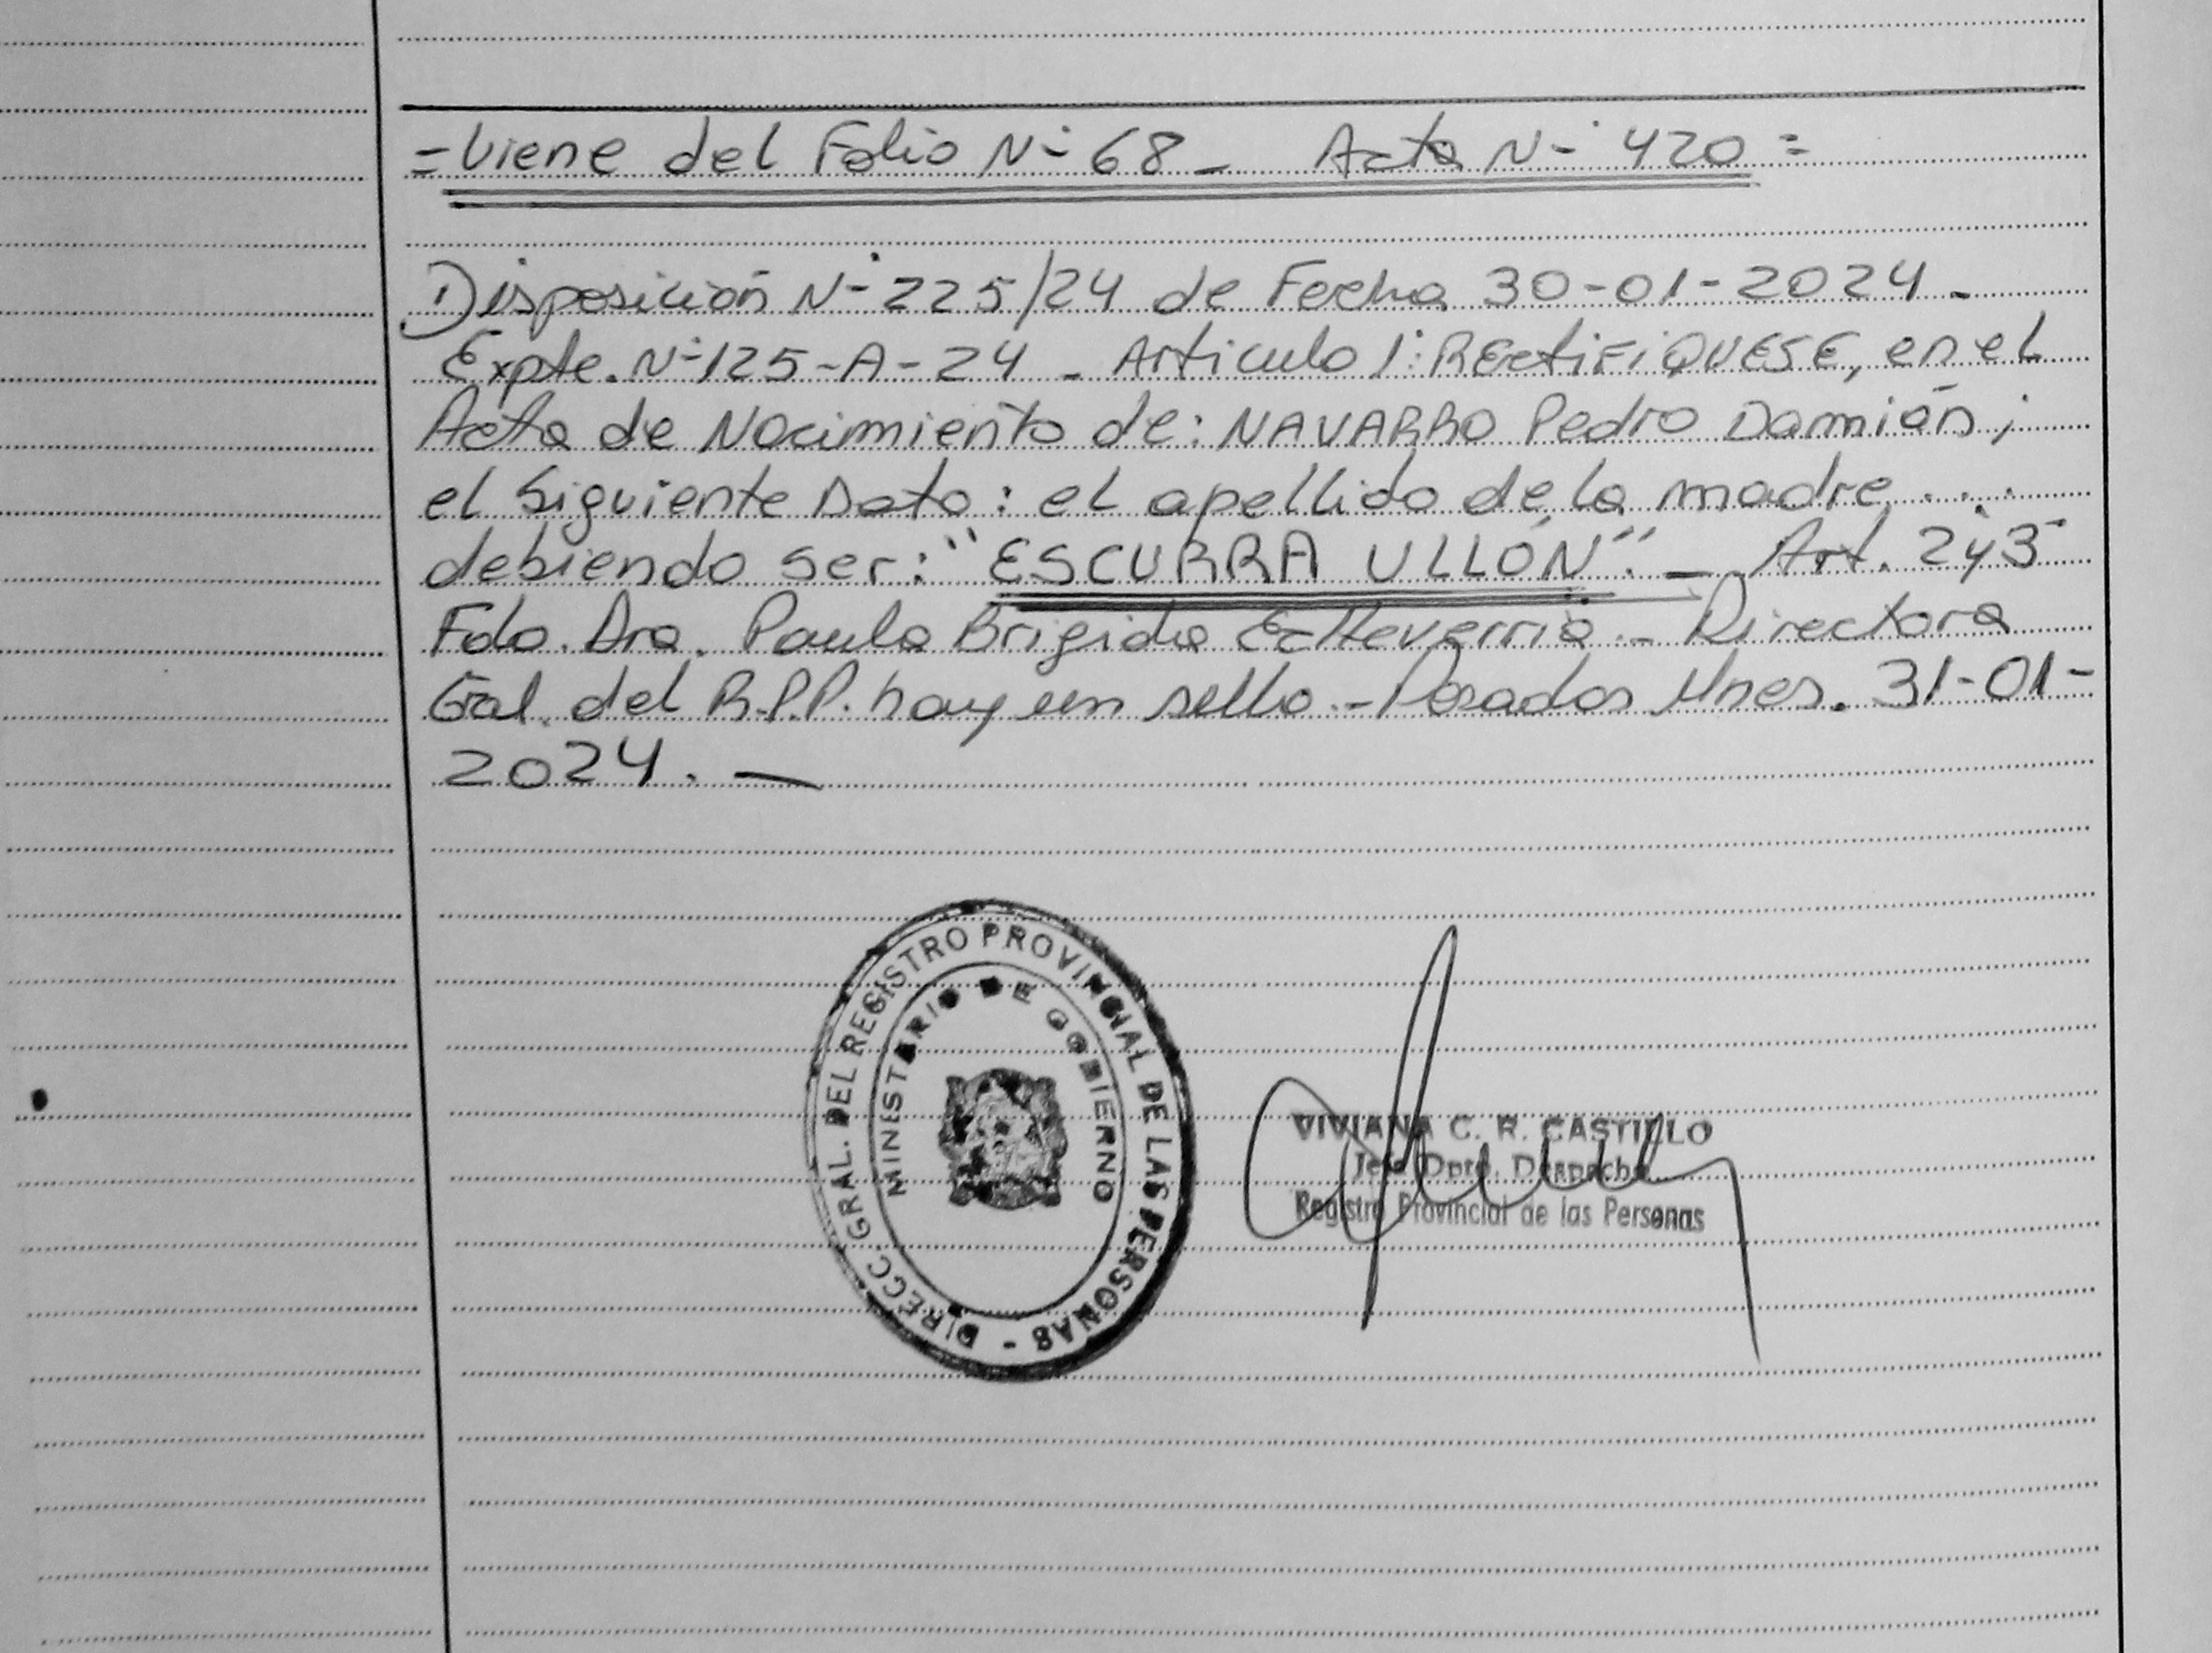 = Viene del Folio N° 68 - Acta N° 420 =
Disposición N° 225/24 de Fecha 30-01-2024 -
Expte. N° 125-A-24 - Articulo 1°: RECTIFIQUESE, en el
Acta de Nacimiento de: NAVARRO Pedro Damián;
el Siguiente Dato: el apellido de la madre...
debiendo ser: "ESCURRA ULLÓN". - Art. 2° y 3°
Fdo. Dra. Paula Brigida Echeverria - Directora
Gral. del R.P.P. hay un sello - Posadas Mnes. 31-01-
2024. -
DIRECC. GRAL. DEL REGISTRO PROVINCIAL DE LAS PERSONAS -
MINISTERIO DE GOBIERNO
VIVIANA C. R. CASTILLO
Jefa Dpto. Despacho
Registro Provincial de las Personas